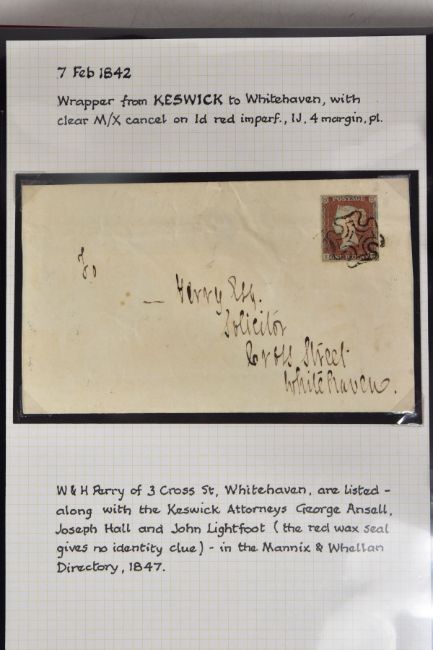 7 Feb 1842
Wrapper from KESWICK to Whitehaven, with
clear M/X cancel on 1d red imperf., IJ, 4 margin, pl.
POSTAGE
To
— Perry Esq.
Solicitor
Cross Street
Whitehaven.
W & H Perry of 3 Cross St, Whitehaven, are listed -
along with the Keswick Attorneys George Ansell,
Joseph Hall and John Lightfoot (the red wax seal
gives no identity clue) - in the Mannix & Whellan
Directory, 1847.